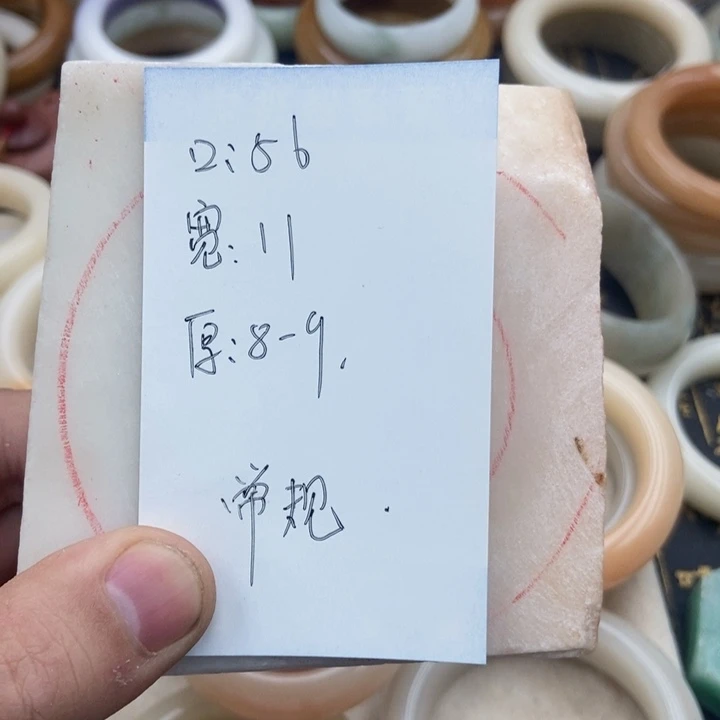 口:56
宽:11
厚:8-9.
常规.